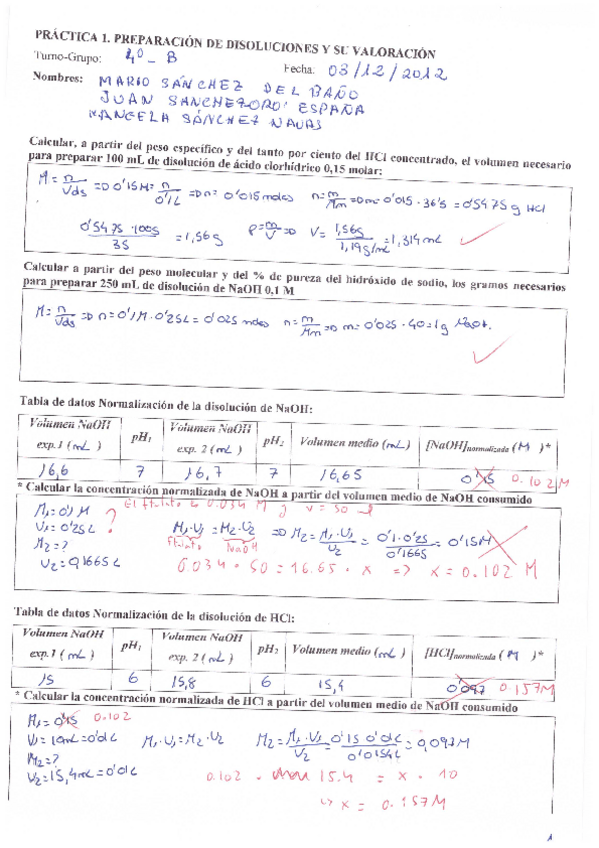 PRÁCTICA 1. PREPARACIÓN DE DISOLUCIONES Y SU VALORACIÓN
Turno-Grupo: 4º_B Fecha: 03/12/2012
Nombres: MARIO SÁNCHEZ DEL BAÑO
JUAN ESPAÑA
SÁNCHEZ NAVAS
Calcular, a partir del peso específico y del tanto por ciento del HCl concentrado, el volumen necesario
para preparar 100 mL de disolución de ácido clorhídrico 0,15 molar:
M = n/Vds => 0'15M = n/0'1L => n = 0'015 moles n = m/Mm => m = 0'015 · 36'5 = 0'5475 g HCl
0'5475 · 100g / 35 = 1,56g ρ = m/V => V = 1,56g / 1,19g/mL = 1,314 mL
Calcular a partir del peso molecular y del % de pureza del hidróxido de sodio, los gramos necesarios
para preparar 250 mL de disolución de NaOH 0,1 M
M = n/Vds => n = 0'1M · 0'25L = 0'025 moles n = m/Mm => m = 0'025 · 40 = 1g NaOH.
Tabla de datos Normalización de la disolución de NaOH:
Volumen NaOH exp.1 (mL) pH1 Volumen NaOH exp. 2 (mL) pH2 Volumen medio (mL) [NaOH]normalizada (M)*
16,6 7 16,7 7 16,65 0'15 0.102 M
* Calcular la concentración normalizada de NaOH a partir del volumen medio de NaOH consumido
El ftalato 0.034 M y v = 50 ml
M1 = 0'1 M
V1 = 0'25L ? M1·V1 = M2·V2 => M2 = M1·V1/V2 = 0'1·0'25/0'1665 = 0'15M
M2 = ? Ftalato NaOH
V2 = 0,1665L 0.034 · 50 = 16.65 · x => x = 0.102 M
Tabla de datos Normalización de la disolución de HCl:
Volumen NaOH exp.1 (mL) pH1 Volumen NaOH exp. 2 (mL) pH2 Volumen medio (mL) [HCl]normalizada (M)*
15 6 15,8 6 15,4 0'097 0.157M
* Calcular la concentración normalizada de HCl a partir del volumen medio de NaOH consumido
M1 = 0'15 0.102
V1 = 10mL = 0'01L M1·V1 = M2·V2 M2 = M1·V1/V2 = 0'15 0'01L/0'0154L = 0,097M
M2 = ?
V2 = 15,4mL = 0'01L 0.102 · 15.4 = x · 10
↳ x = 0.157M